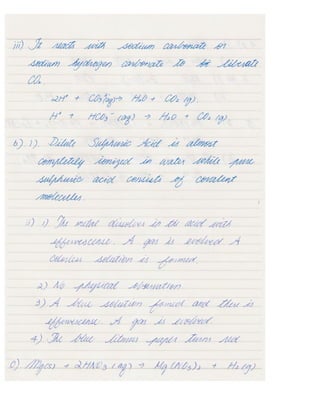 iii) It reacts with sodium carbonate or
sodium hydrogen carbonate to liberate
CO₂
2H⁺ + CO₃²⁻(aq) → H₂O + CO₂ (g).
H⁺ + HCO₃⁻ (aq) → H₂O + CO₂ (g).
b) i). Dilute Sulphuric Acid is almost
completely ionized in water while pure
sulphuric acid consists of covalent
molecules.
ii) 1) The metal dissolves in the acid with
effervescense. A gas is evolved. A
colorless solution is formed.
2) No physical observation.
3) A blue solution formed and there is
effervescense. A gas is evolved.
4) The blue litmus paper turns red
c) Mg(s) + 2HNO₃ (aq) → Mg(NO₃)₂ + H₂(g)